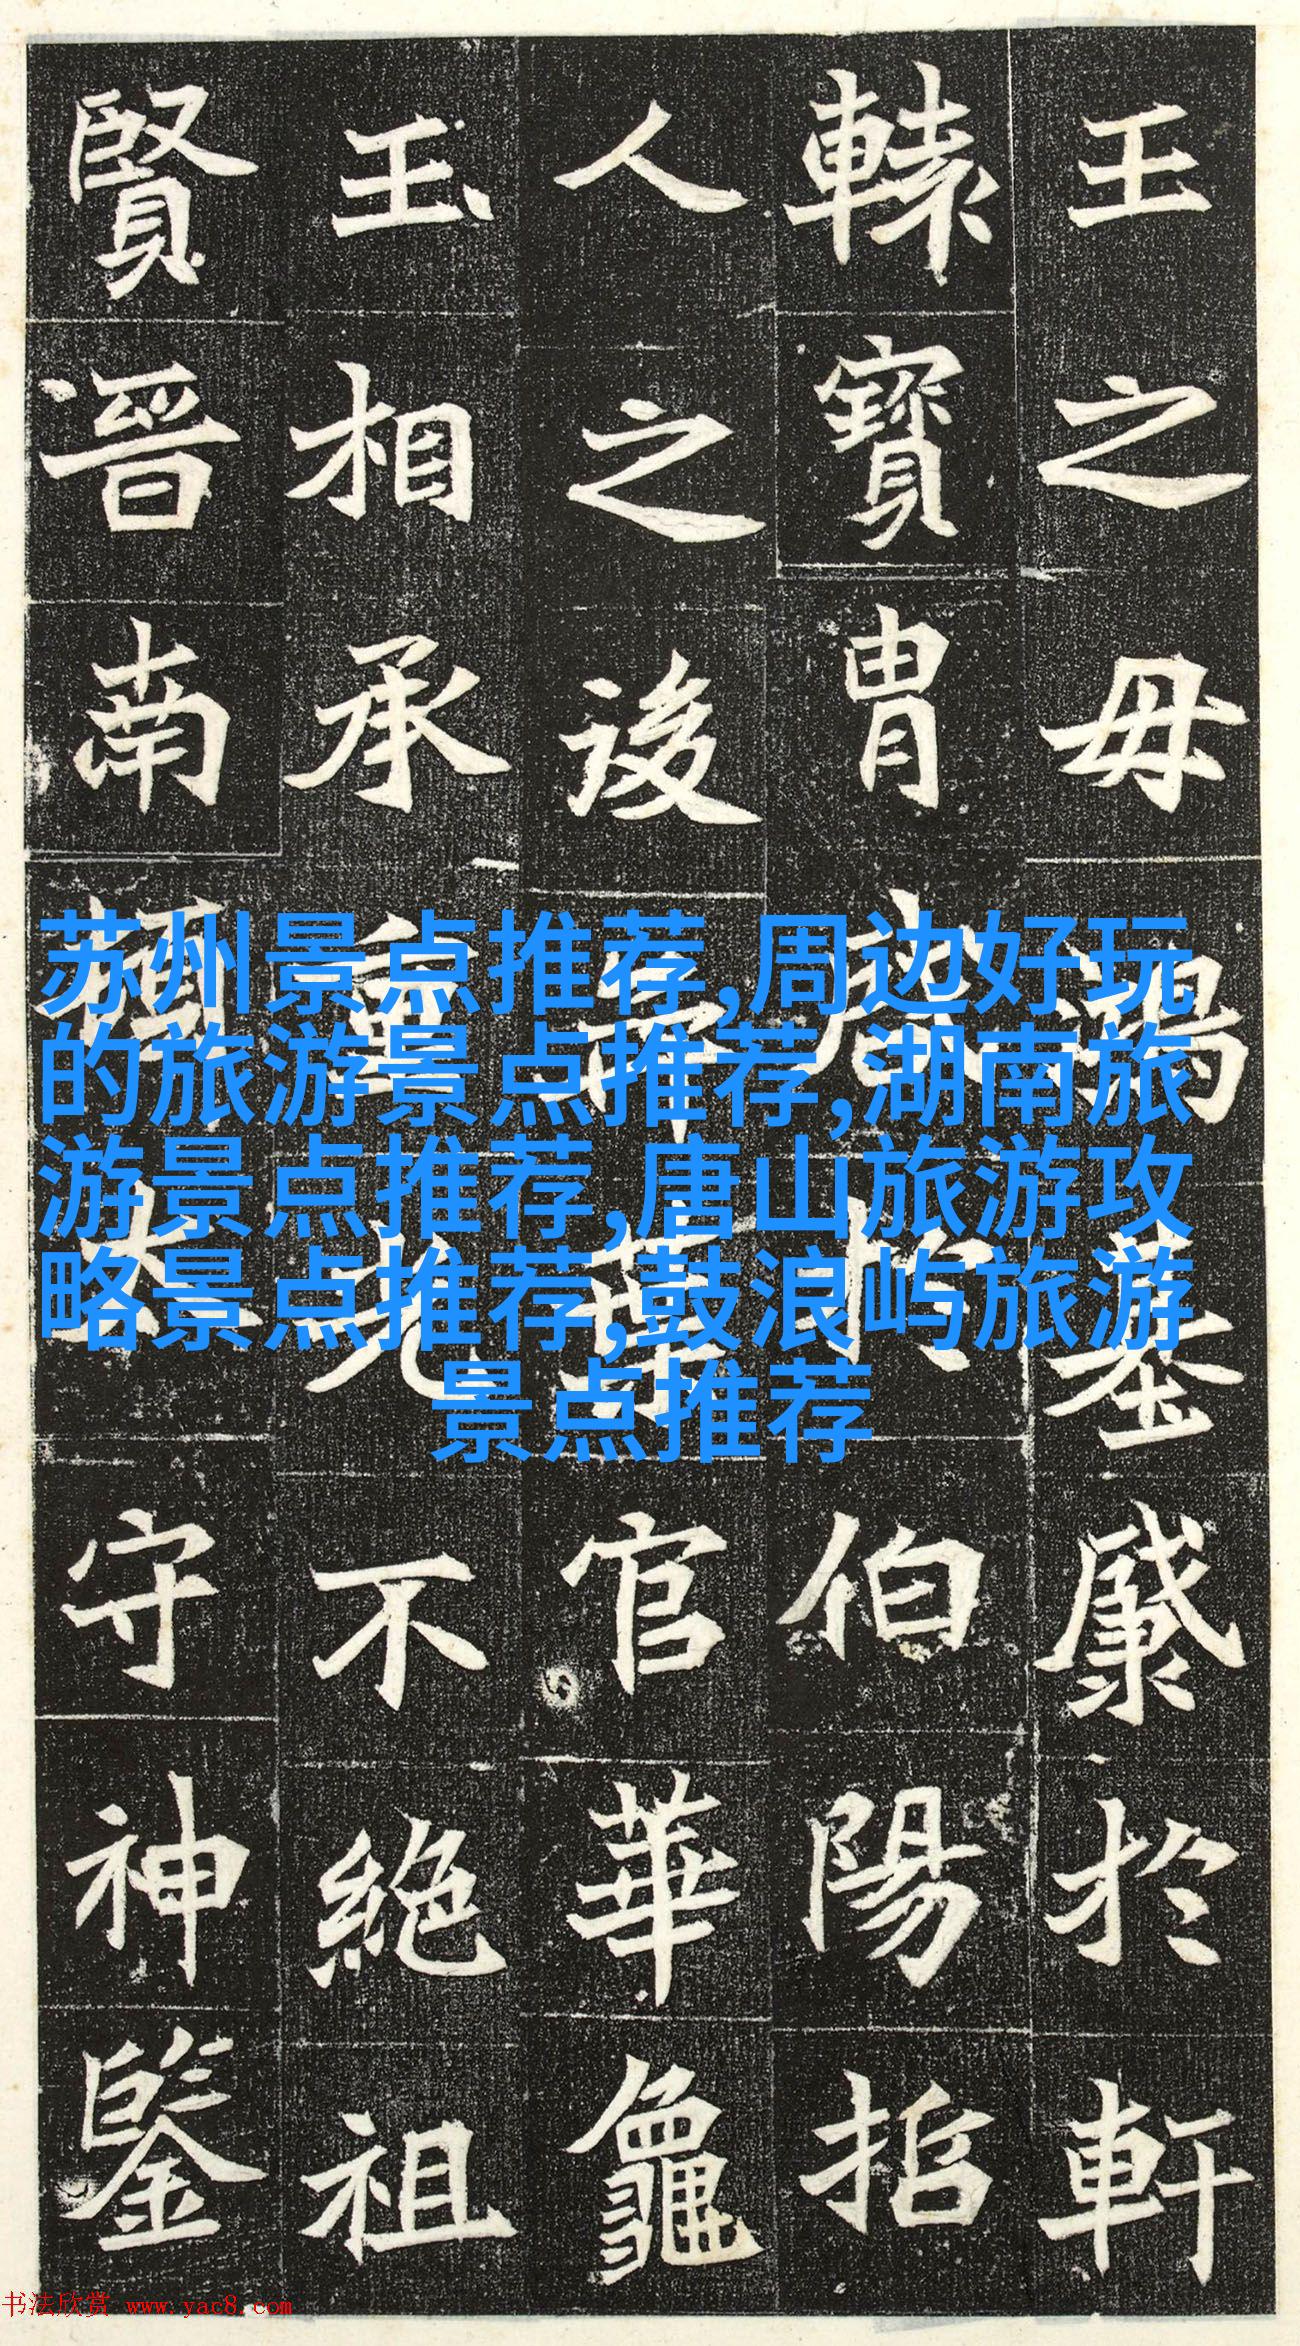 王之毋鴻基於軒
轅寶胄於伯陽指
人之後官華龜
玉相承重光不絕祖
賢晉南太守神鑒
苏州景点推荐,周边好玩
的旅游景点推荐,湖南旅
游景点推荐,唐山旅游攻
略景点推荐,鼓浪屿旅游
景点推荐
书法欣赏 www.yac8.com